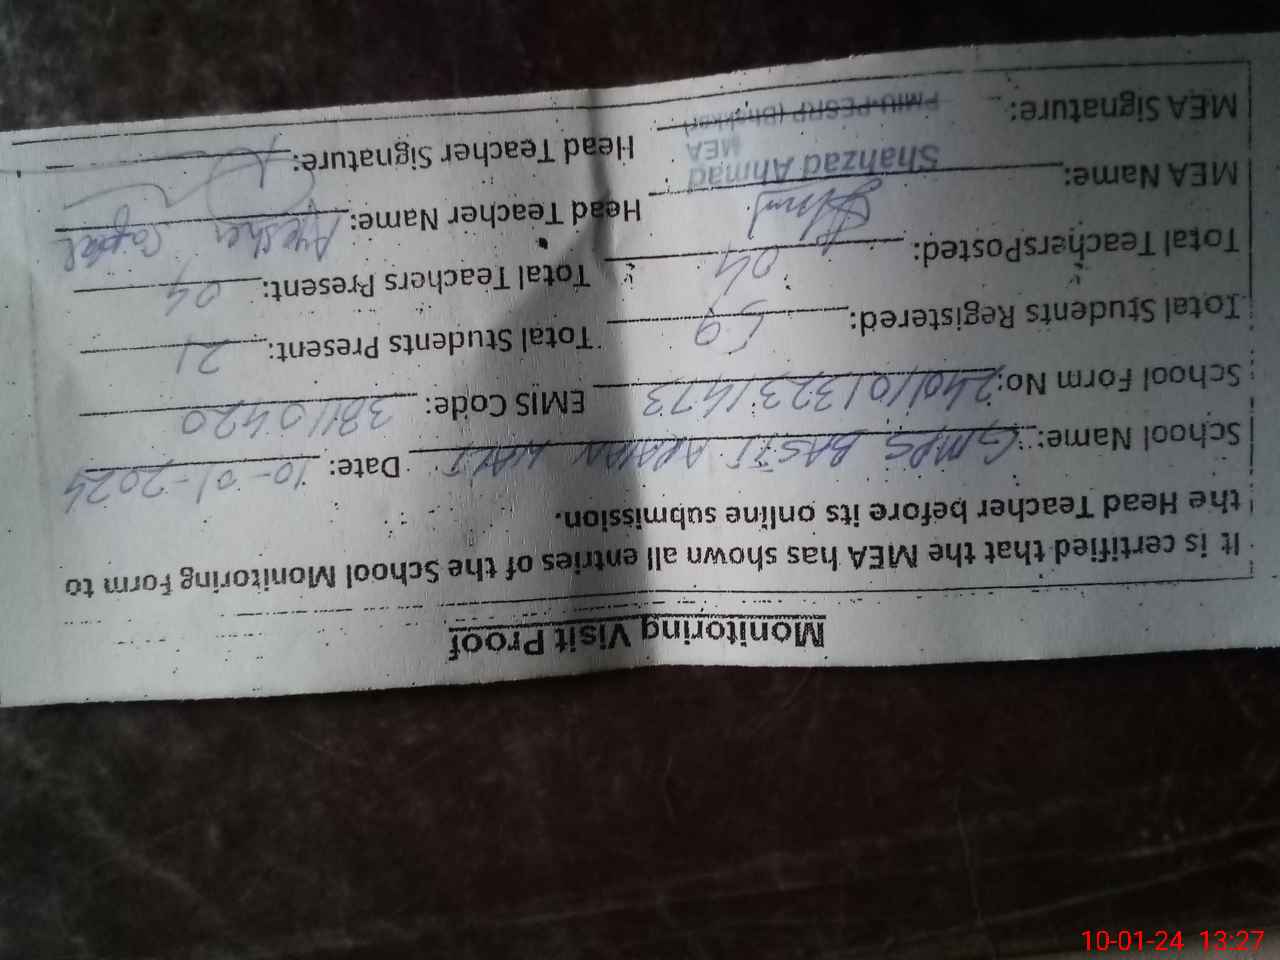 Monitoring Visit Proof
It is certified that the MEA has shown all entries of the School Monitoring Form to
the Head Teacher before its online submission.
School Name: GMPS BASTI WALI Date: 10-01-2024
School Form No: 24011013231473 EMIS Code: 38110420
Total Students Registered: 59 Total Students Present: 21
Total TeachersPosted: 04 Total Teachers Present: 04
MEA Name: Shahzad Ahmad Head Teacher Name: Ayesha
MEA
MEA Signature: PMIU-PESRP (Bhakkar) Head Teacher Signature:
10-01-24 13:27